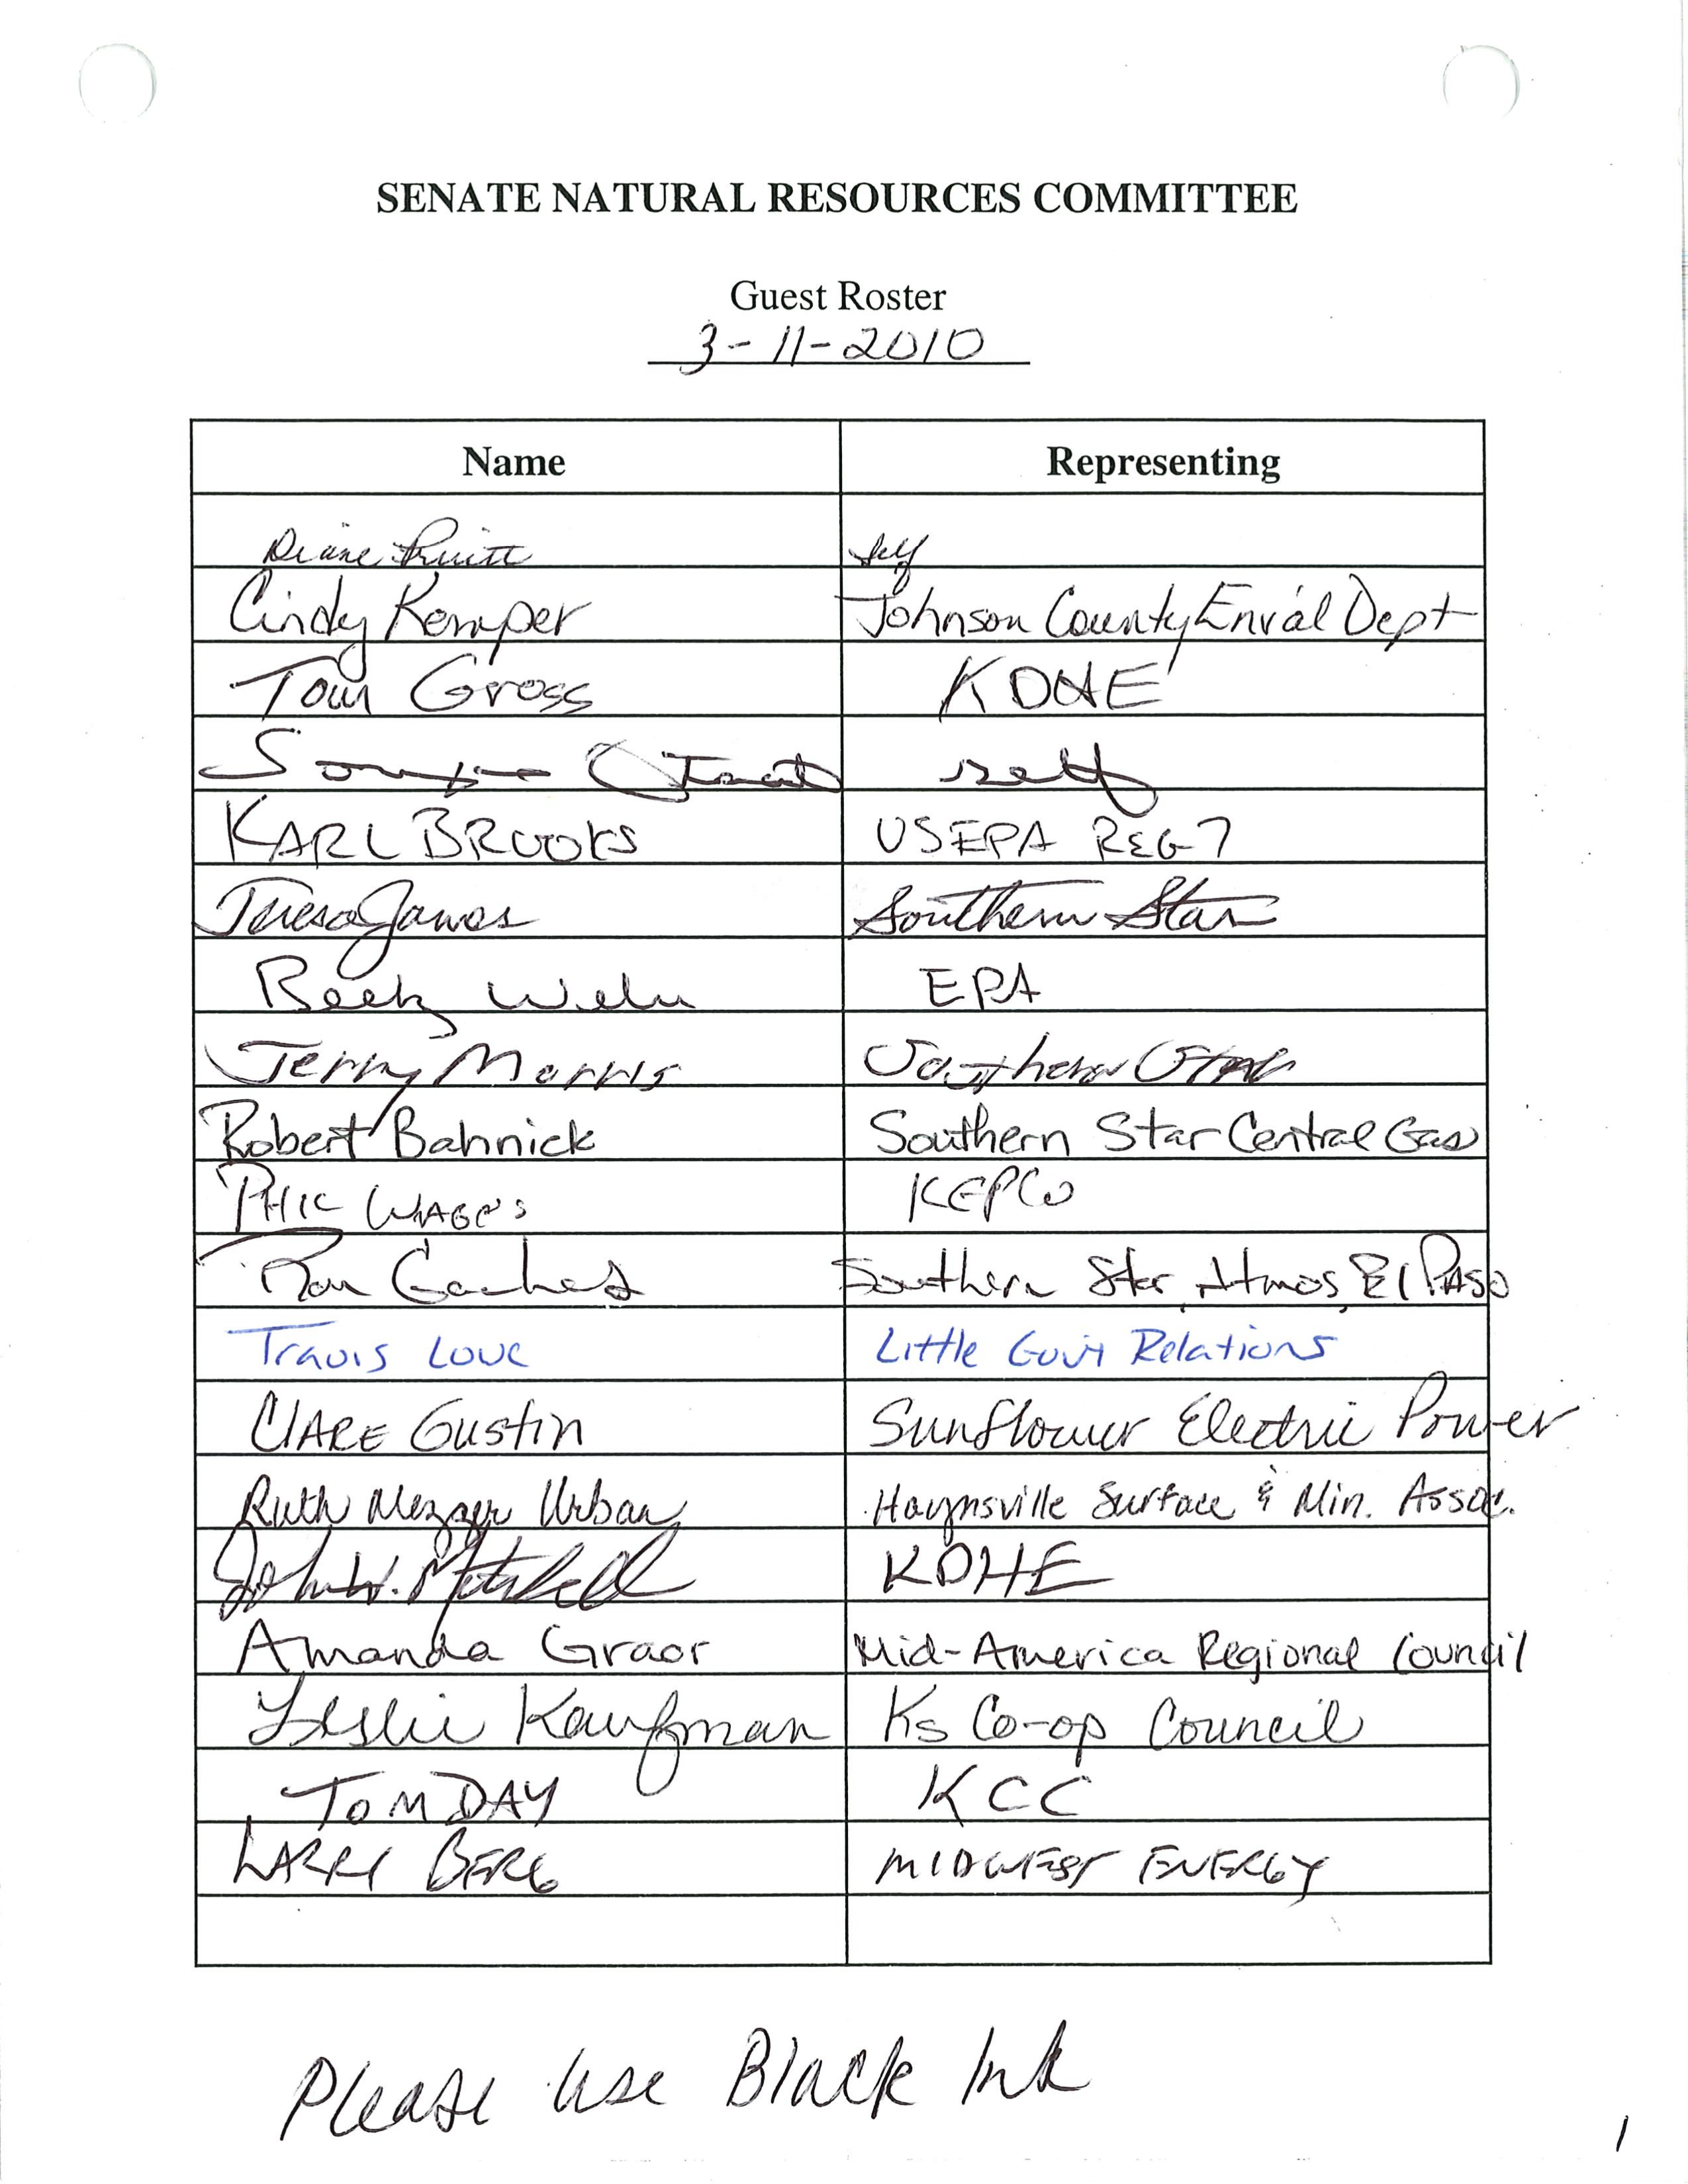 SENATE NATURAL RESOURCES COMMITTEE
Guest Roster
3-11-2010
Name Representing
Diane Pruitt self
Cindy Kemper Johnson County Env'al Dept
Tom Gross KDHE
self
KARL BROOKS USEPA REG 7
Teresa James Southern Star
Becky EPA
Jerry Morris Southern Star
Robert Bahnick Southern Star Central Gas
PHIL WAGES KEPCo
Ron Gaches Southern Star, Atmos, El PASO
Travis Lowe Little Gov't Relations
CLARE Gustin Sunflower Electric Power
Ruth Mezger Urban Haynsville Surface & Min. Assoc.
John W. Mitchell KDHE
Amanda Graor Mid-America Regional Council
Leslie Kaufman Ks Co-op Council
TOM DAY KCC
LARRY BERG MIDWEST ENERGY
Please use Black Ink
1